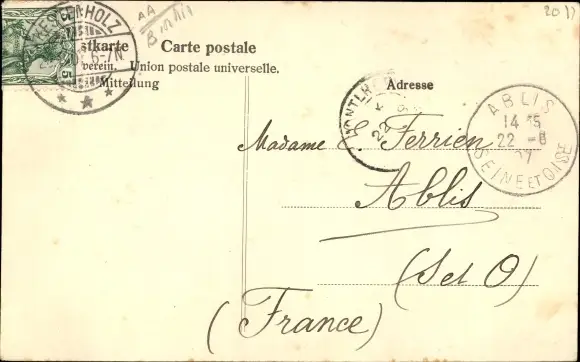 stkarte Carte postale
verein. Union postale universelle.
Mitteilung
Adresse
ABLIS
14 15
22 -8
07
SEINE ET OISE
Madame E Ferrien
Ablis
(S et O)
(France)